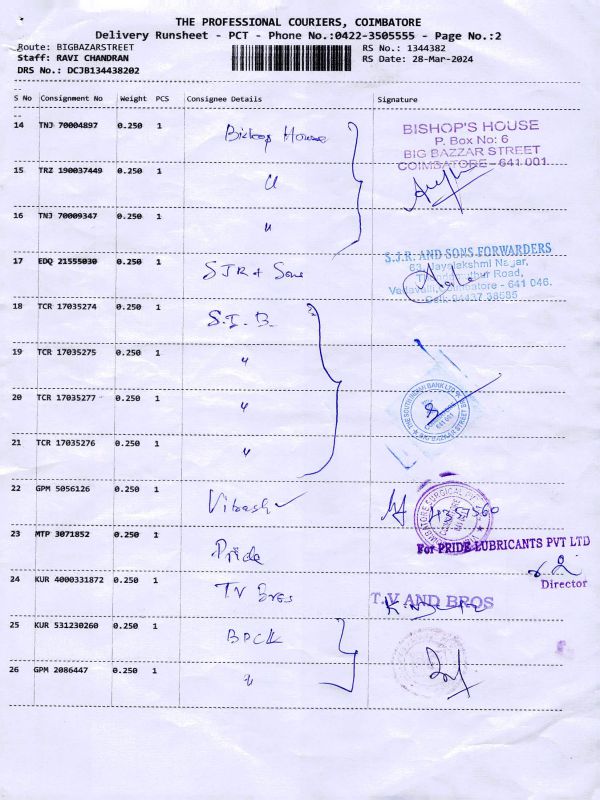 THE PROFESSIONAL COURIERS, COIMBATORE
Delivery Runsheet - PCT - Phone No.:0422-3505555 - Page No.:2
Route: BIGBAZARSTREET RS No.: 1344382
Staff: RAVI CHANDRAN RS Date: 28-Mar-2024
DRS No.: DCJB134438202
S No Consignment No Weight PCS Consignee Details Signature
14 TNJ 70004897 0.250 1 Bishop House
BISHOP'S HOUSE
P. Box No: 6
BIG BAZZAR STREET
COIMBATORE - 641 001
15 TRZ 190037449 0.250 1 "
16 TNJ 70009347 0.250 1 "
17 EDQ 21555030 0.250 1 SJR & Sons
S.J.R. AND SONS FORWARDERS
63, Jayalakshmi Nagar,
Road,
Coimbatore - 641 046.
18 TCR 17035274 0.250 1 S.I.B.
19 TCR 17035275 0.250 1 "
20 TCR 17035277 0.250 1 "
THE SOUTH INDIAN BANK LTD
BIG BAZAAR STREET BR
641 001
21 TCR 17035276 0.250 1 "
22 GPM 5056126 0.250 1
COIMBATORE SURGICAL
4357560
23 MTP 3071852 0.250 1 Pride
For PRIDE LUBRICANTS PVT LTD
Director
24 KUR 4000331872 0.250 1 TV Bros
T.V AND BROS
25 KUR 531230260 0.250 1 BPCK
26 GPM 2086447 0.250 1 "